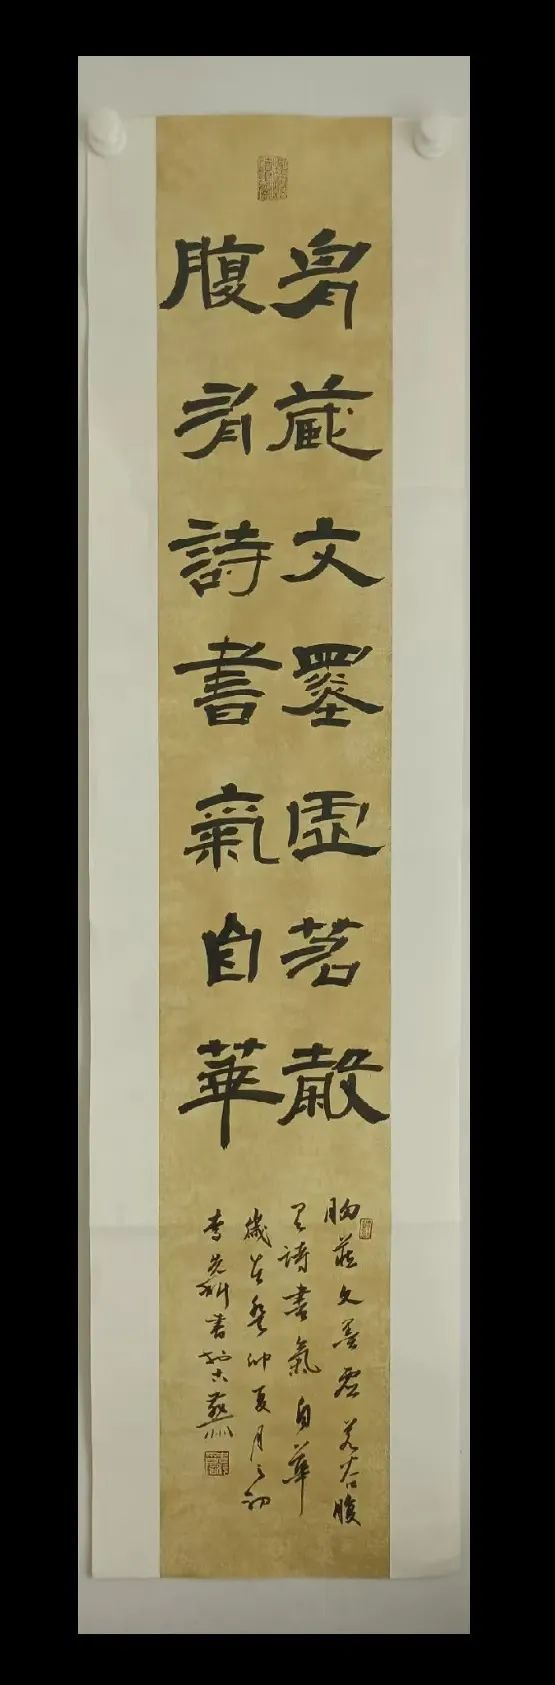 胷藏文墨虛若
腹有詩書氣自華
胸藏文墨虛若谷腹
有詩書氣自華
歲在癸卯夏月之初
李光科書於古燕